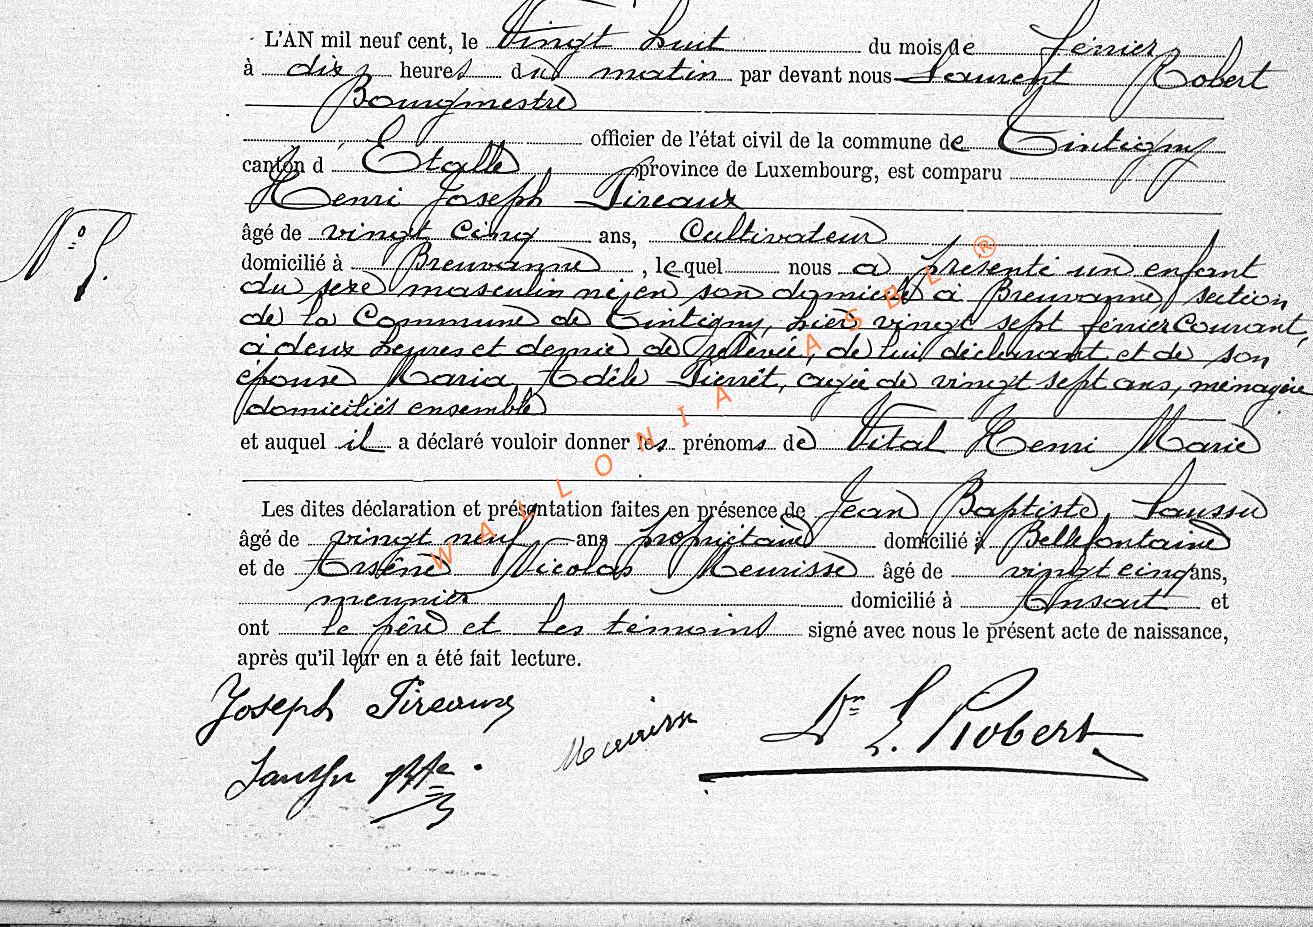 L'AN mil neuf cent, le Vingt huit du mois de février
à dix heures du matin par devant nous Laurent Robert
Bourgmestre
officier de l'état civil de la commune de Tintigny
canton d'Etalle province de Luxembourg, est comparu
Henri Joseph Pireaux
N° 5.
âgé de vingt cinq ans, Cultivateur
domicilié à Breuvanne, lequel nous a présenté un enfant
du sexe masculin né en son domicile à Breuvanne, section
de la Commune de Tintigny, hier vingt sept février courant,
à deux heures et demie de relevée, de lui déclarant et de son
épouse Maria Adèle Pierret, agée de vingt sept ans, ménagère
domiciliés ensemble
et auquel il a déclaré vouloir donner les prénoms de Vital Henri Marie
Les dites déclaration et présentation faites en présence de Jean Baptiste
âgé de vingt neuf ans propriétaire domicilié à Bellefontaine
et de Arsène Nicolas Meurisse âgé de vingt cinq ans,
meunier domicilié à Ansart et
ont le père et les témoins signé avec nous le présent acte de naissance,
après qu'il leur en a été fait lecture.
Joseph Pireaux
Meurisse
Dr L. Robert
WALLONIA ASBL ®